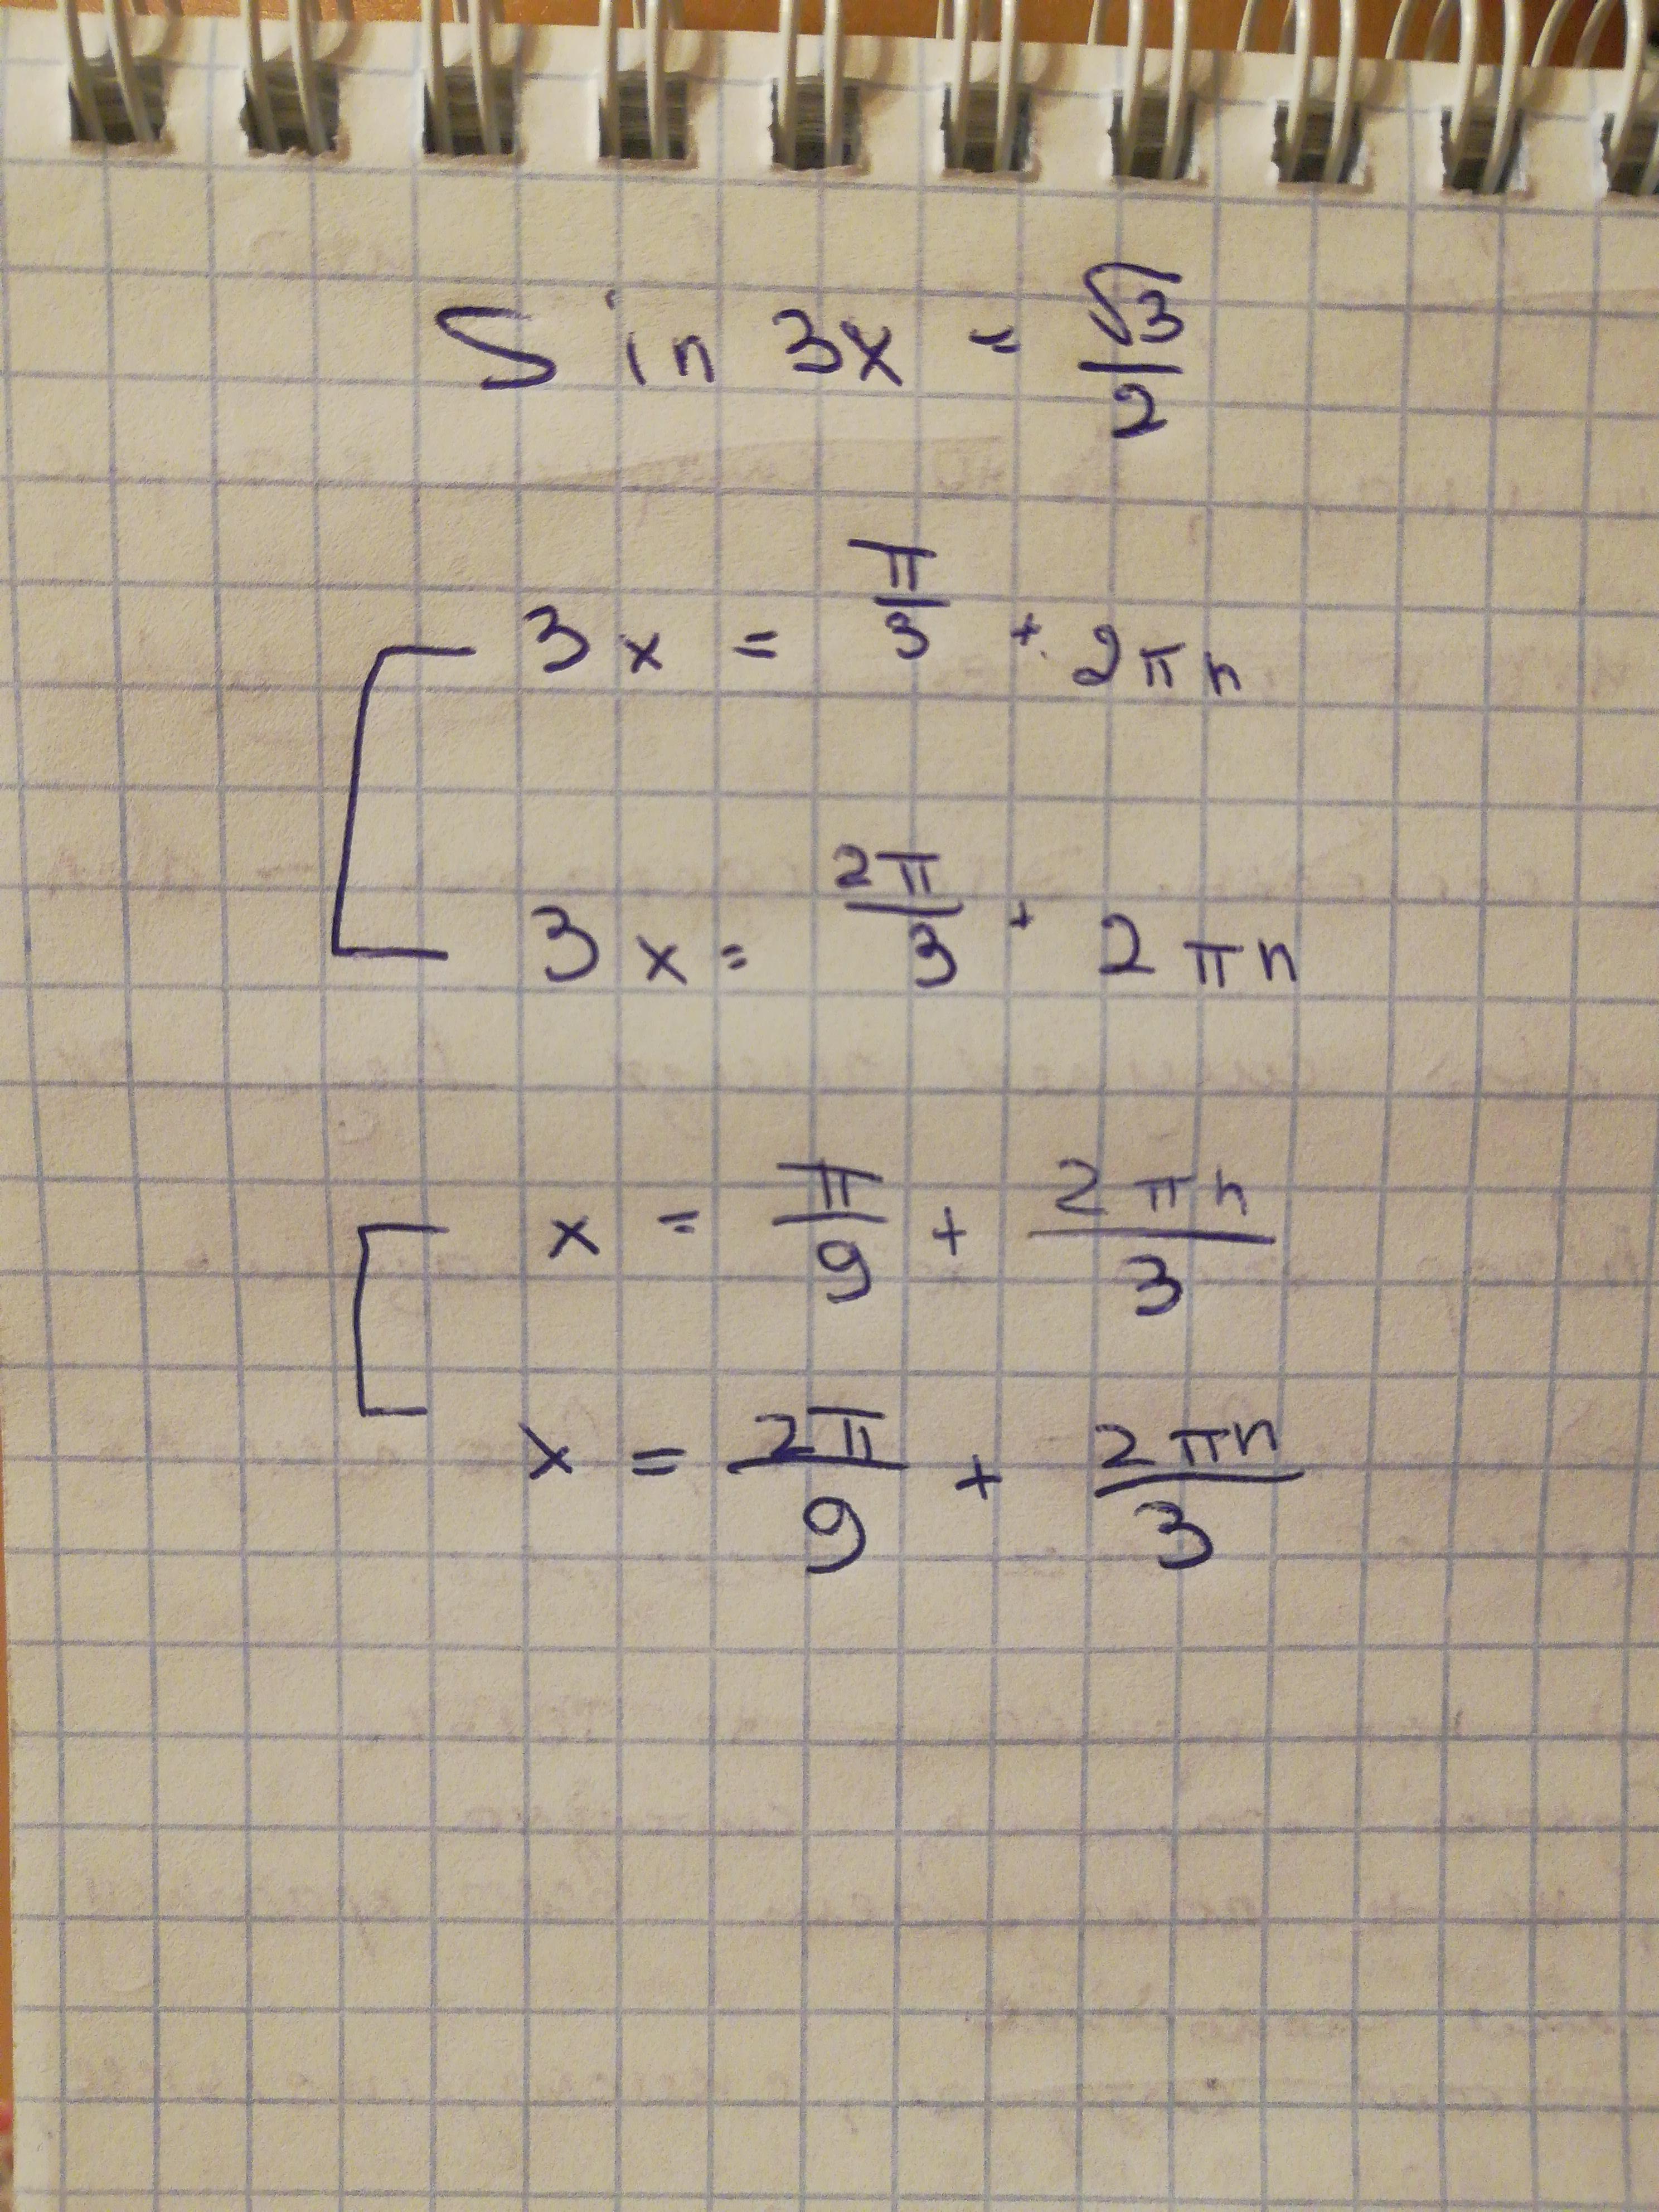 Sin 3x = √3/2
3x = π/3 + 2πn
3x = 2π/3 + 2πn
x = π/9 + 2πn/3
x = 2π/9 + 2πn/3